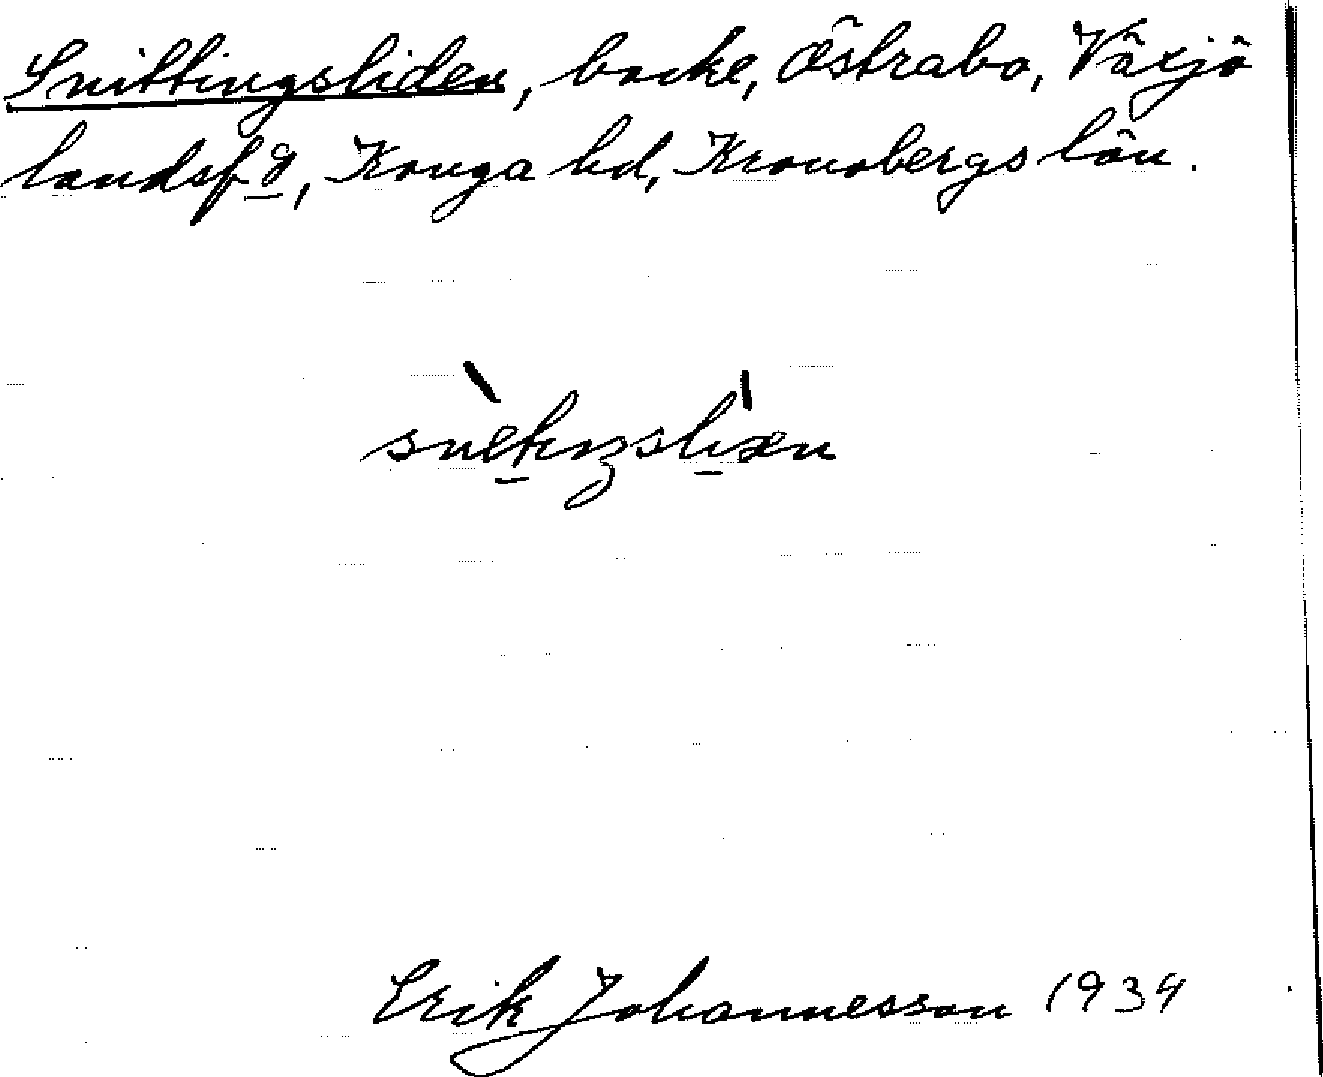 Snittingsliden, backe, Östrabo, Växjö
landsf g, Konga hd, Kronobergs län.
Erik Johannesson 1934